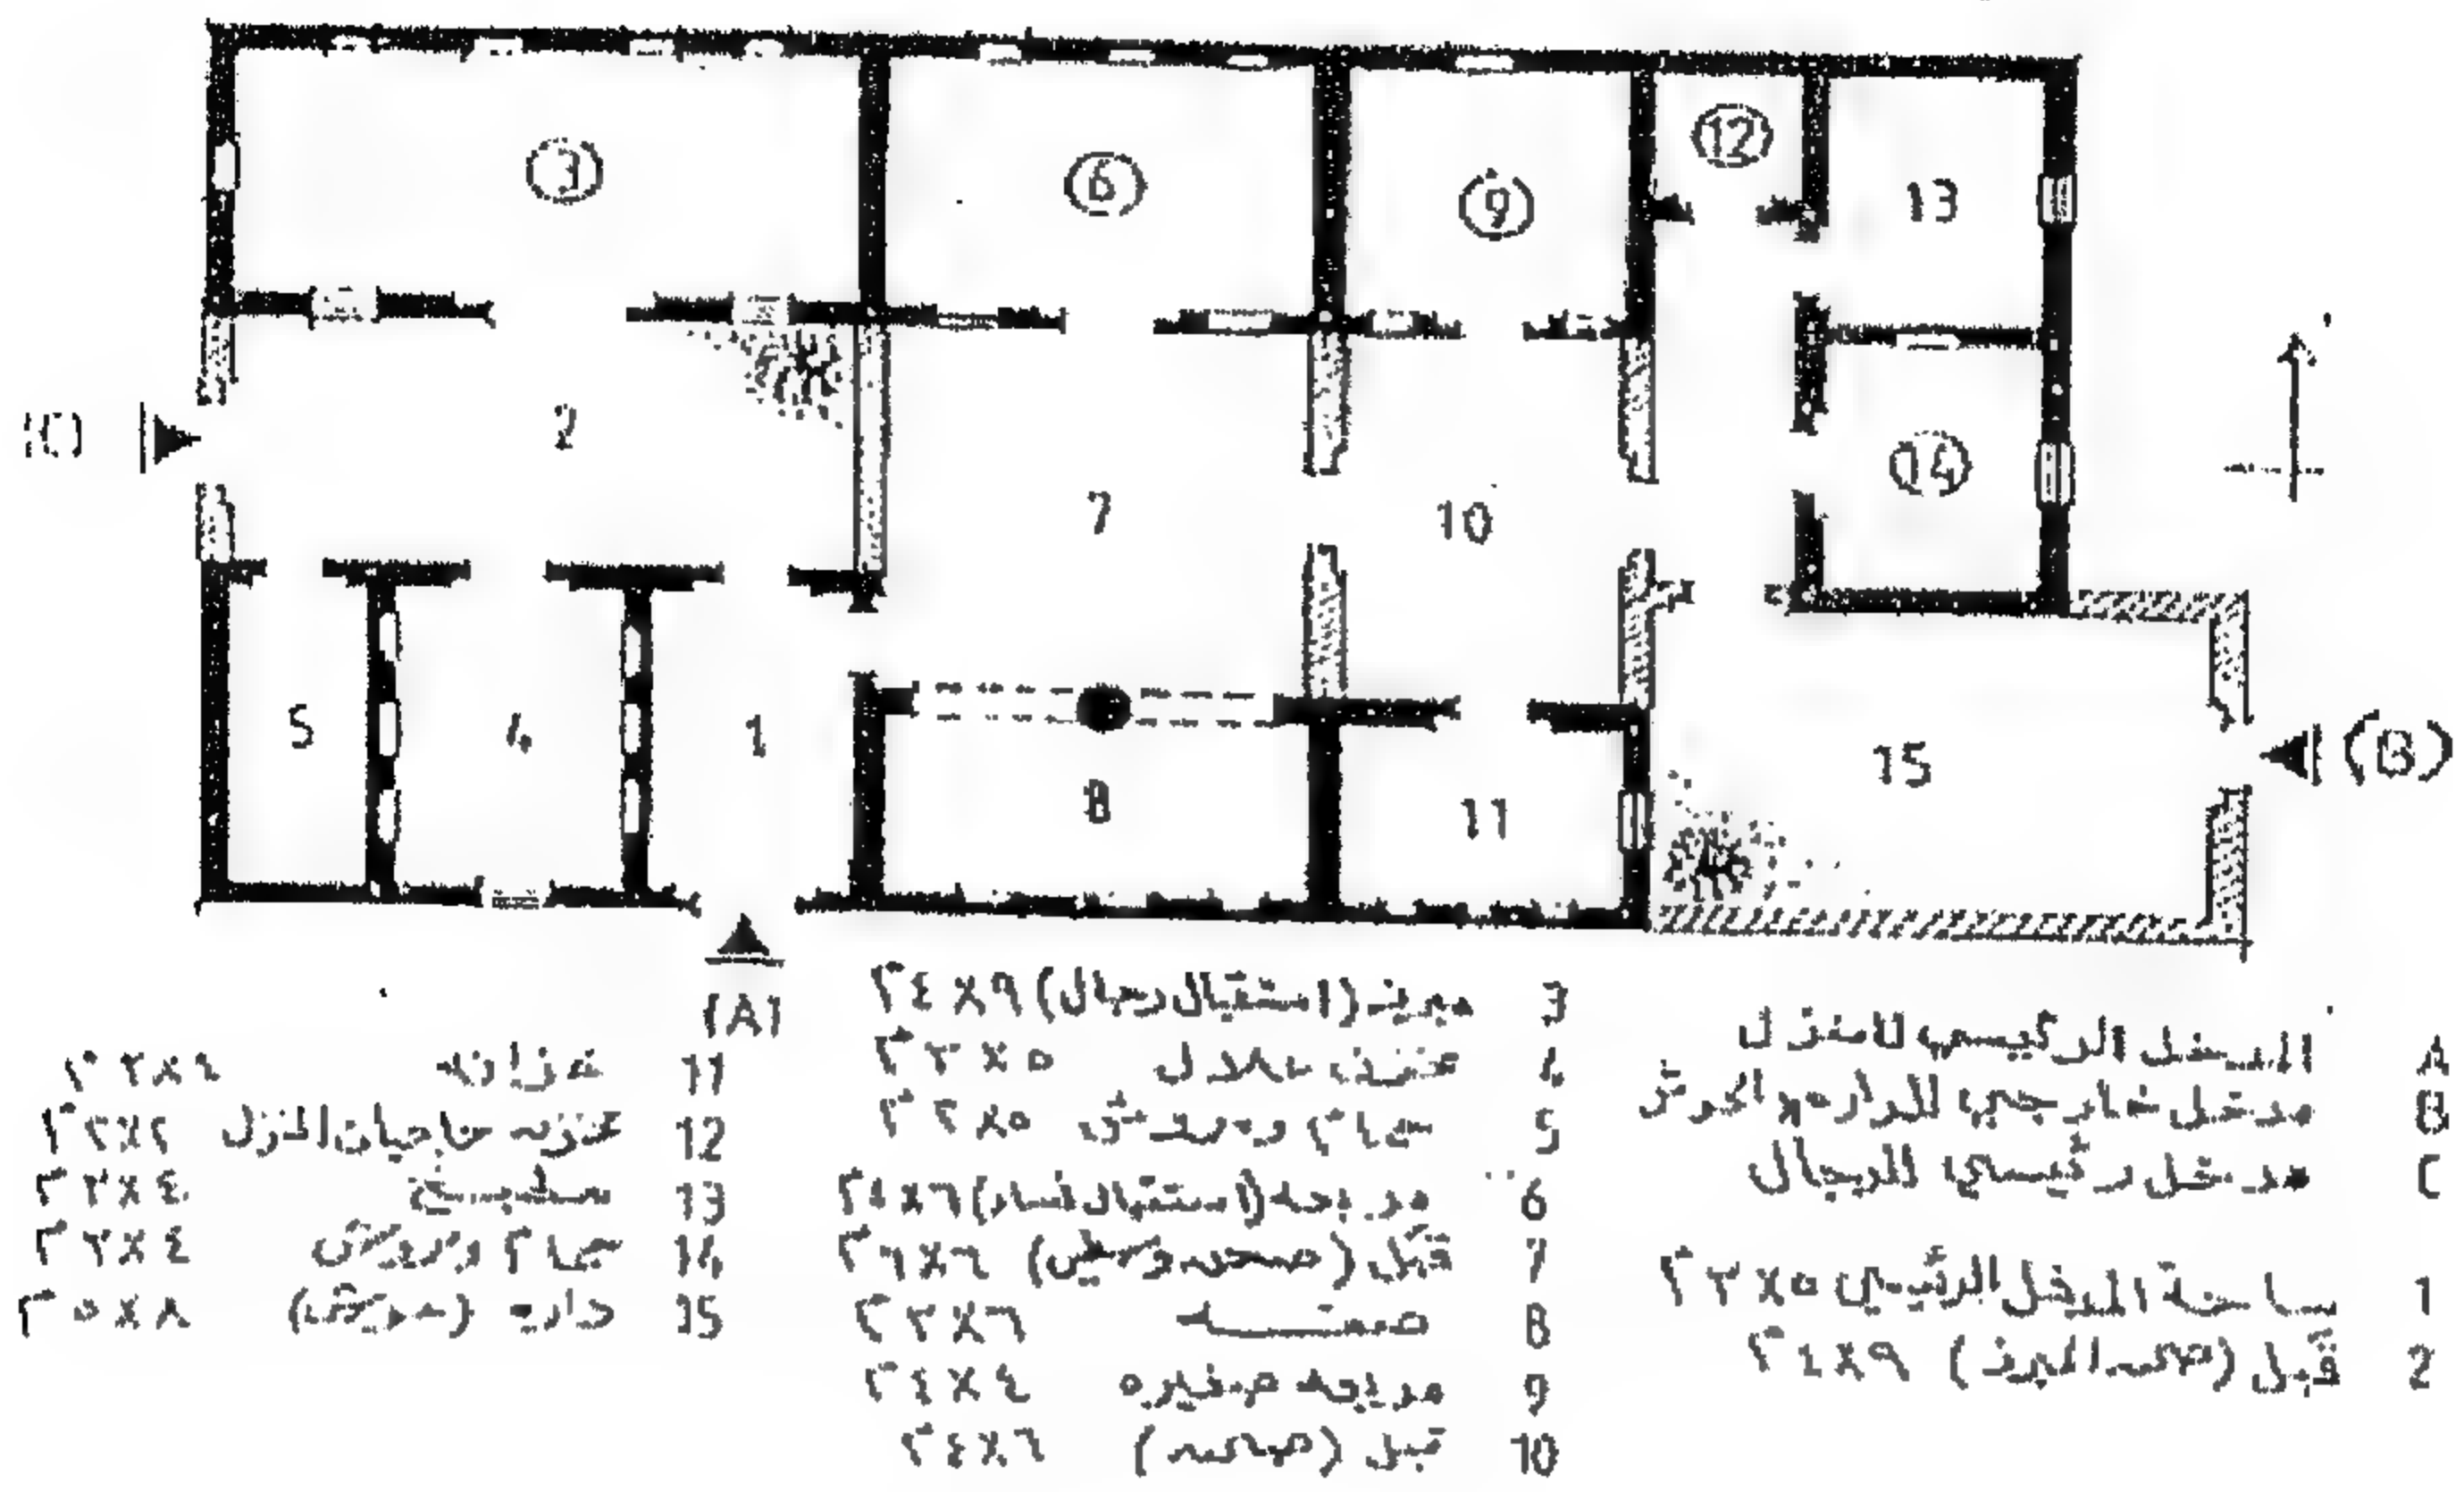 3
6
9
12
13
14
2
7
10
5
4
1
8
11
15
(C)
(B)
(A)
A المدخل الرئيسي للمنزل
B مدخل خارجي للداره والحوش
C مدخل رئيسي للرجال
1 ساحة المدخل الرئيسي ٥×٣م
2 قبل (صحن المبرز) ٩×٤م
3 مبرز (استقبال رجال) ٩×٤م
4 ٥×٣م
5 حمام ٥×٢م
6 مربعه (استقبال نساء) ٦×٤م
7 قبل (صحن وسطي) ٦×٦م
8 صفه ٦×٣م
9 مربعه صغيره ٤×٤م
10 قبل (صحن) ٦×٤م
11 خزانه ٤×٣م
12 حاجيات المنزل ٢×٢م
13 مطبخ ٤×٣م
14 حمام ٤×٣م
15 داره (حوش) ٨×٥م